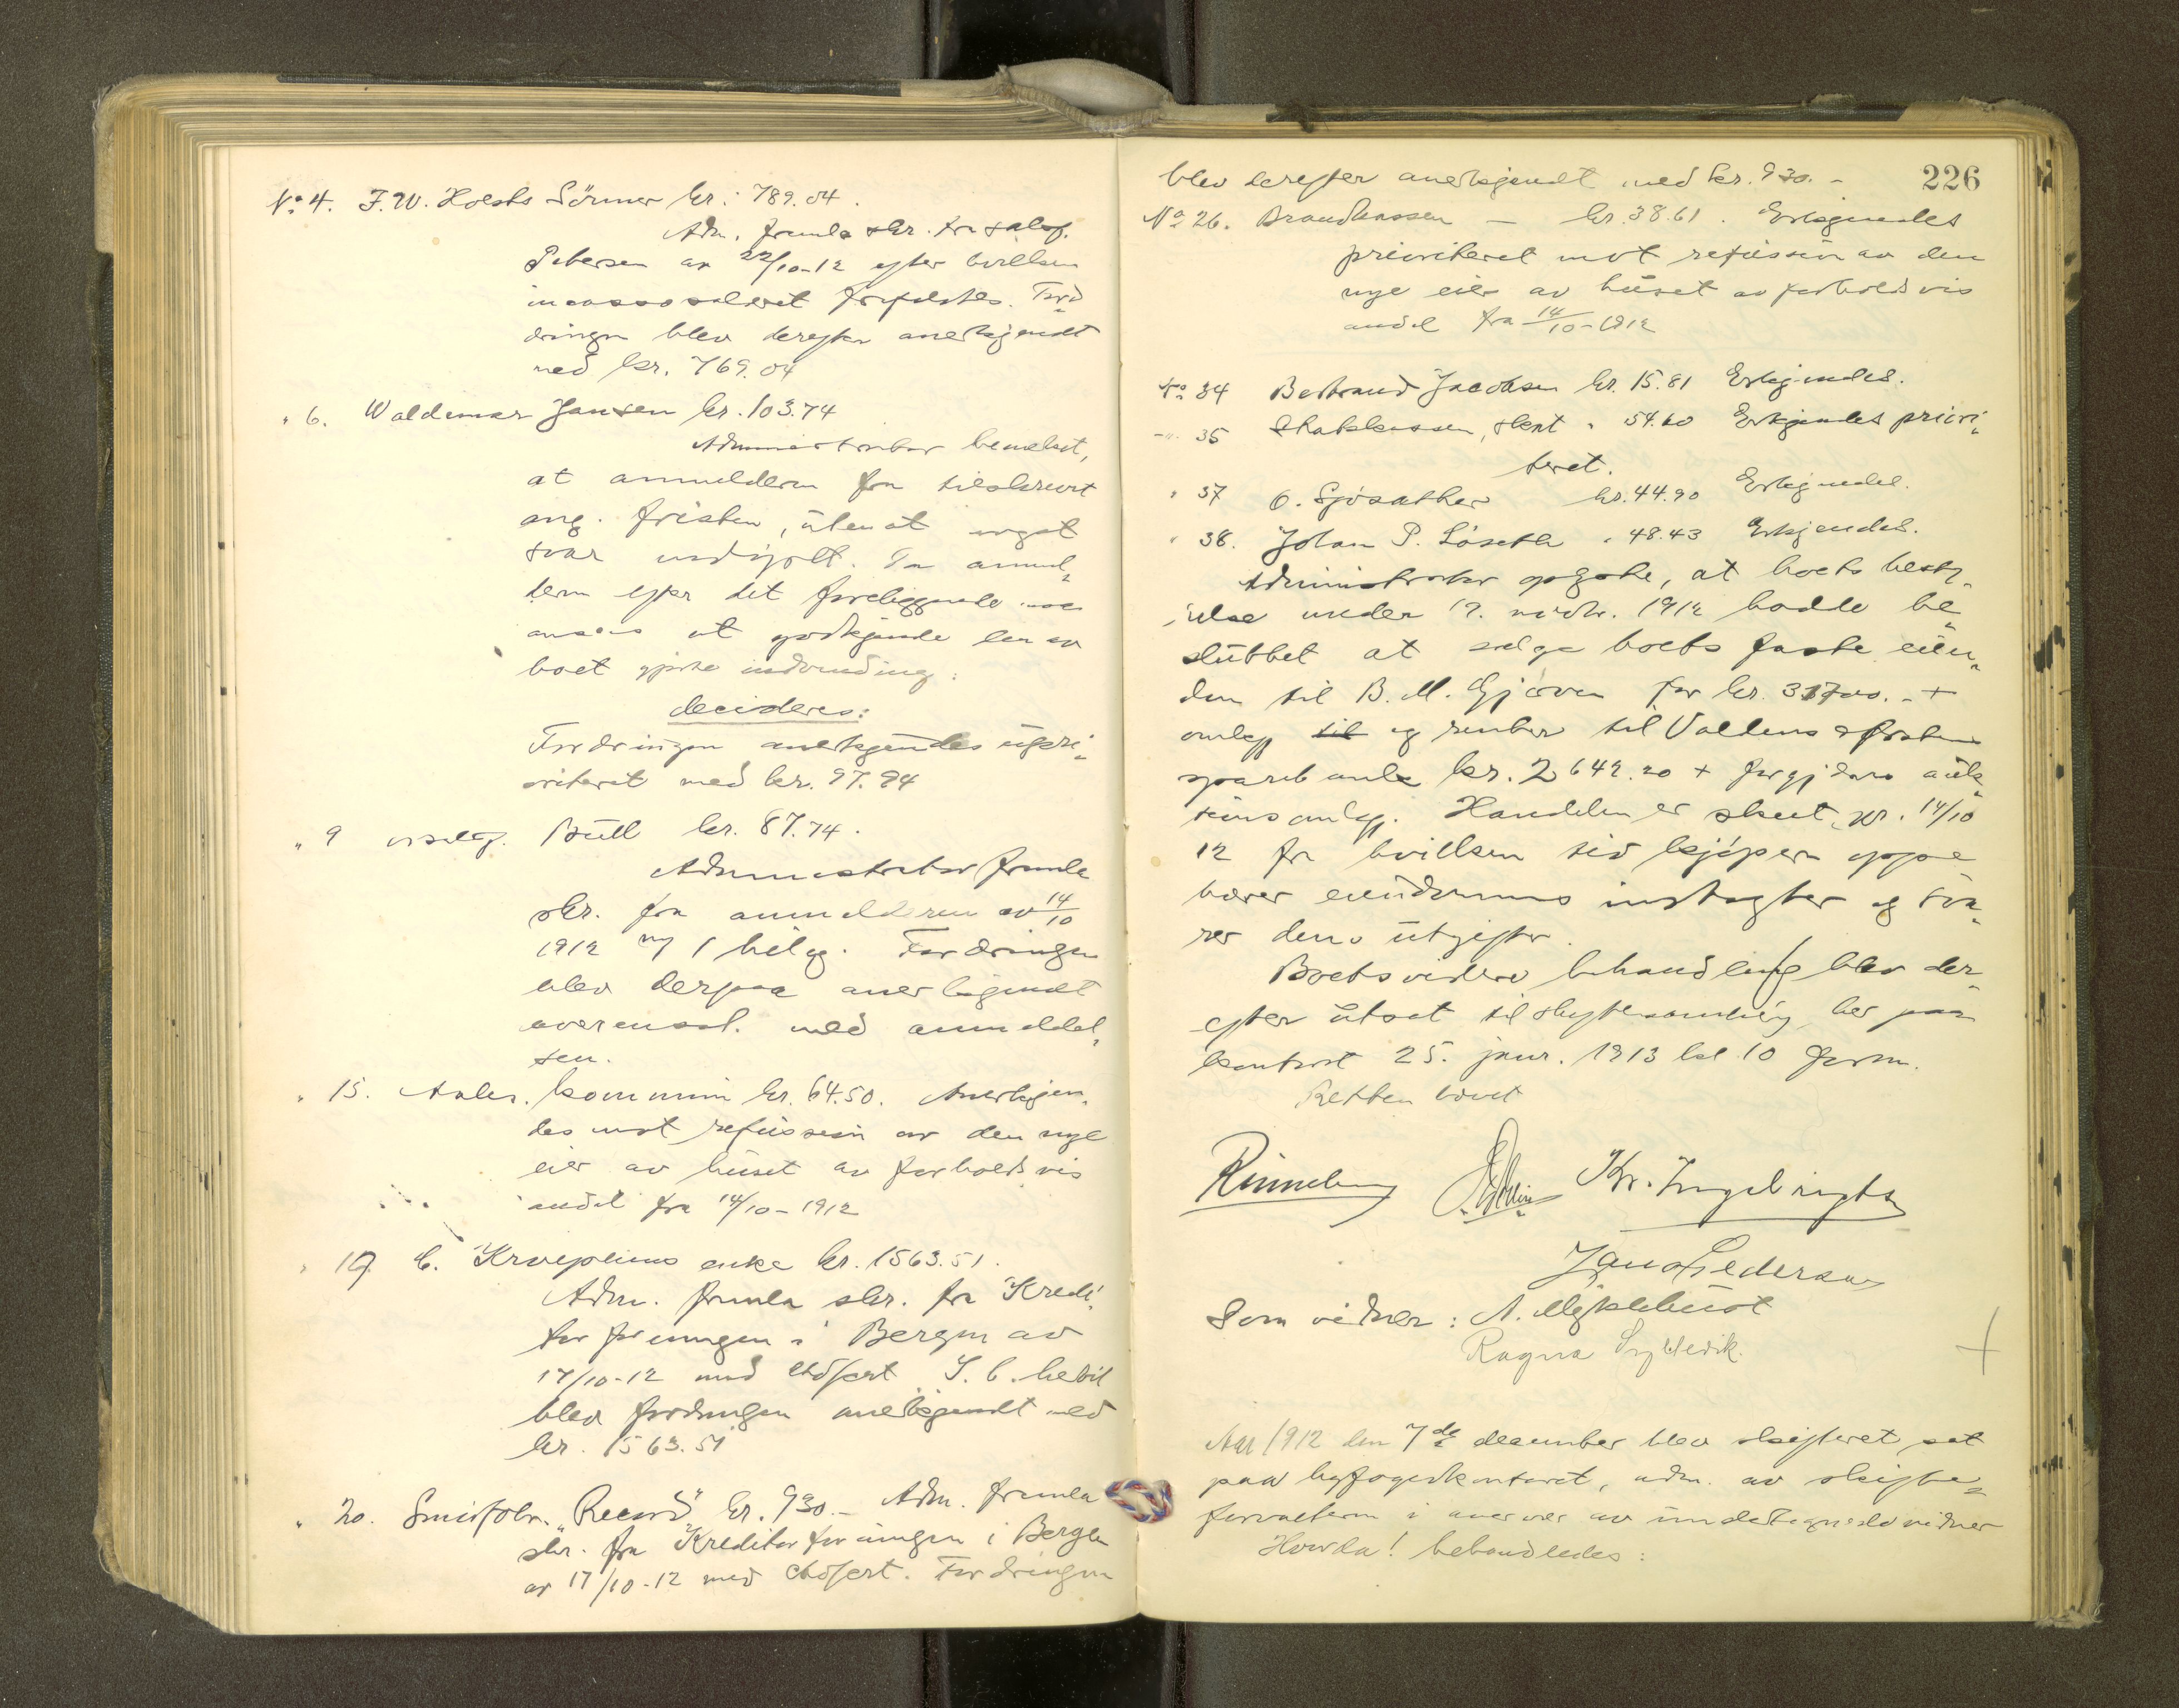 No 4. F. W. Holsts Sönner kr. 789.04.
Adm. fremla skr. fra sakf.
Petersen av 22/10-12 efter hvilken
incassosalæret frafaldtes. For„
dringen blev derefter anerkjendt
med kr. 769.04
„ 6. Waldemar Jansen kr. 103.74
Administrator bemerket,
at anmelderen fra tilskrevet
ang. fristen, uten at noget
svar indgik. Da anmel„
deren efter det foreliggende maa
ansees at godkjende den av
boet gjorte indvending:
decideres:
Fordringen anerkjendes upri„
oriteret med kr. 97.94
„ 9 Büll kr. 87.74.
Administrator fremla
skr. fra anmelderen av 14/10
1912 m/ 1 bilag. Fordringen
blev derpaa anerkjendt
overensst. med anmeldel„
sen.
„ 15. Aales. kommune kr. 64.50. Anerkjen„
des mot refusion av den nye
eier av huset av forholdsvis
andel fra 14/10-1912
„ 19. C. Kroepliens enke kr. 1563.51.
Adm. fremla skr. fra Kredi„
torforeningen i Bergen av
17/10-12 med
blev fordringen anerkjendt med
kr. 1563.51
„ 20. "Record" kr. 930.- Adm. fremla
skr. fra Kreditorforeningen i Bergen
av 17/10-12 med Fordringen
226
blev derefter anerkjendt med kr. 930.-
No 26. Brandkassen — kr. 38.61. Erkjendes
prioriteret mot refusion av den
nye eier av huset av forholdsvis
andel fra 14/10-1912
No 34 Bertrand Jacobsen kr. 15.81 Erkjendes.
-„- 35 Skatekassen, skat „ 54.60 Erkjendes priori„
teret.
„ 37 O. Sjösæther kr. 44.90 Erkjendes.
„ 38. Johan P. Löseth „ 48.43 Erkjendes.
Administrator opgote, at boets besty„
relse under 19. novbr. 1912 hadde be„
sluttet at sælge boets faste eien„
dom til B. M. Gjæven for kr. 31700.- +
omkg. til og renter til Voldens &
sparebank kr. 2642.20 + forgjæves auk„
tionsomkg. Handelen er sluttet pr. 14/10
12 fra hvilken tid kjøperen oppe„
bærer eiendommens indtægter og sva„
rer dens utgifter.
Boets videre behandling blev der„
efter utsat til skiftesamling her paa
kontoret 25. janr. 1913 kl. 10 form.
Retten hævet
Kr. Ingebrigtsen
Jens Pedersen
Som vidner: A. Myklebust
Ragna
Aar 1912 den 7de december blev skifteret sat
paa byfogedkontoret, adm. av skifte„
forvalteren i overvær av undertegnede vidner
Hvorda! behandledes: